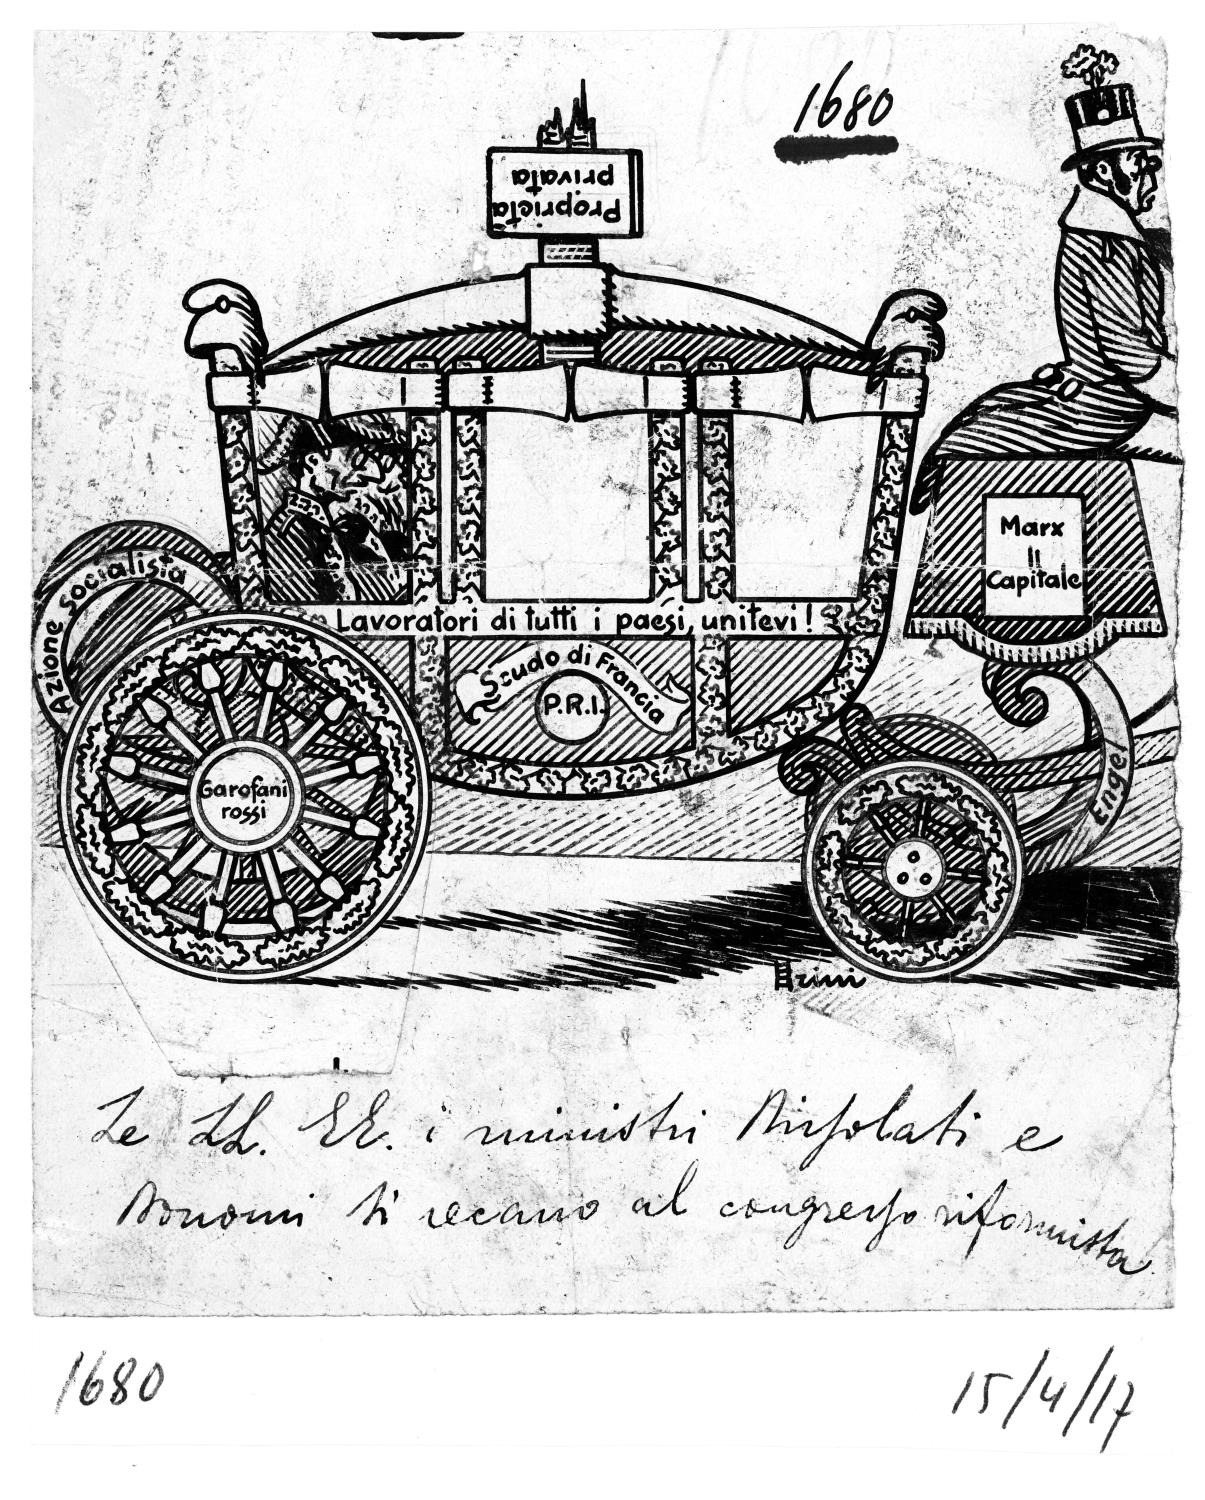 1680
Proprietà
privata
Marx
Il
Capitale
Azione socialista
Lavoratori di tutti i paesi, unitevi!
Scudo di Francia
P.R.I.
Garofani
rossi
Engel
Le LL. EE. i ministri Bissolati e
Bonomi si recano al congresso riformista
1680
15/4/17